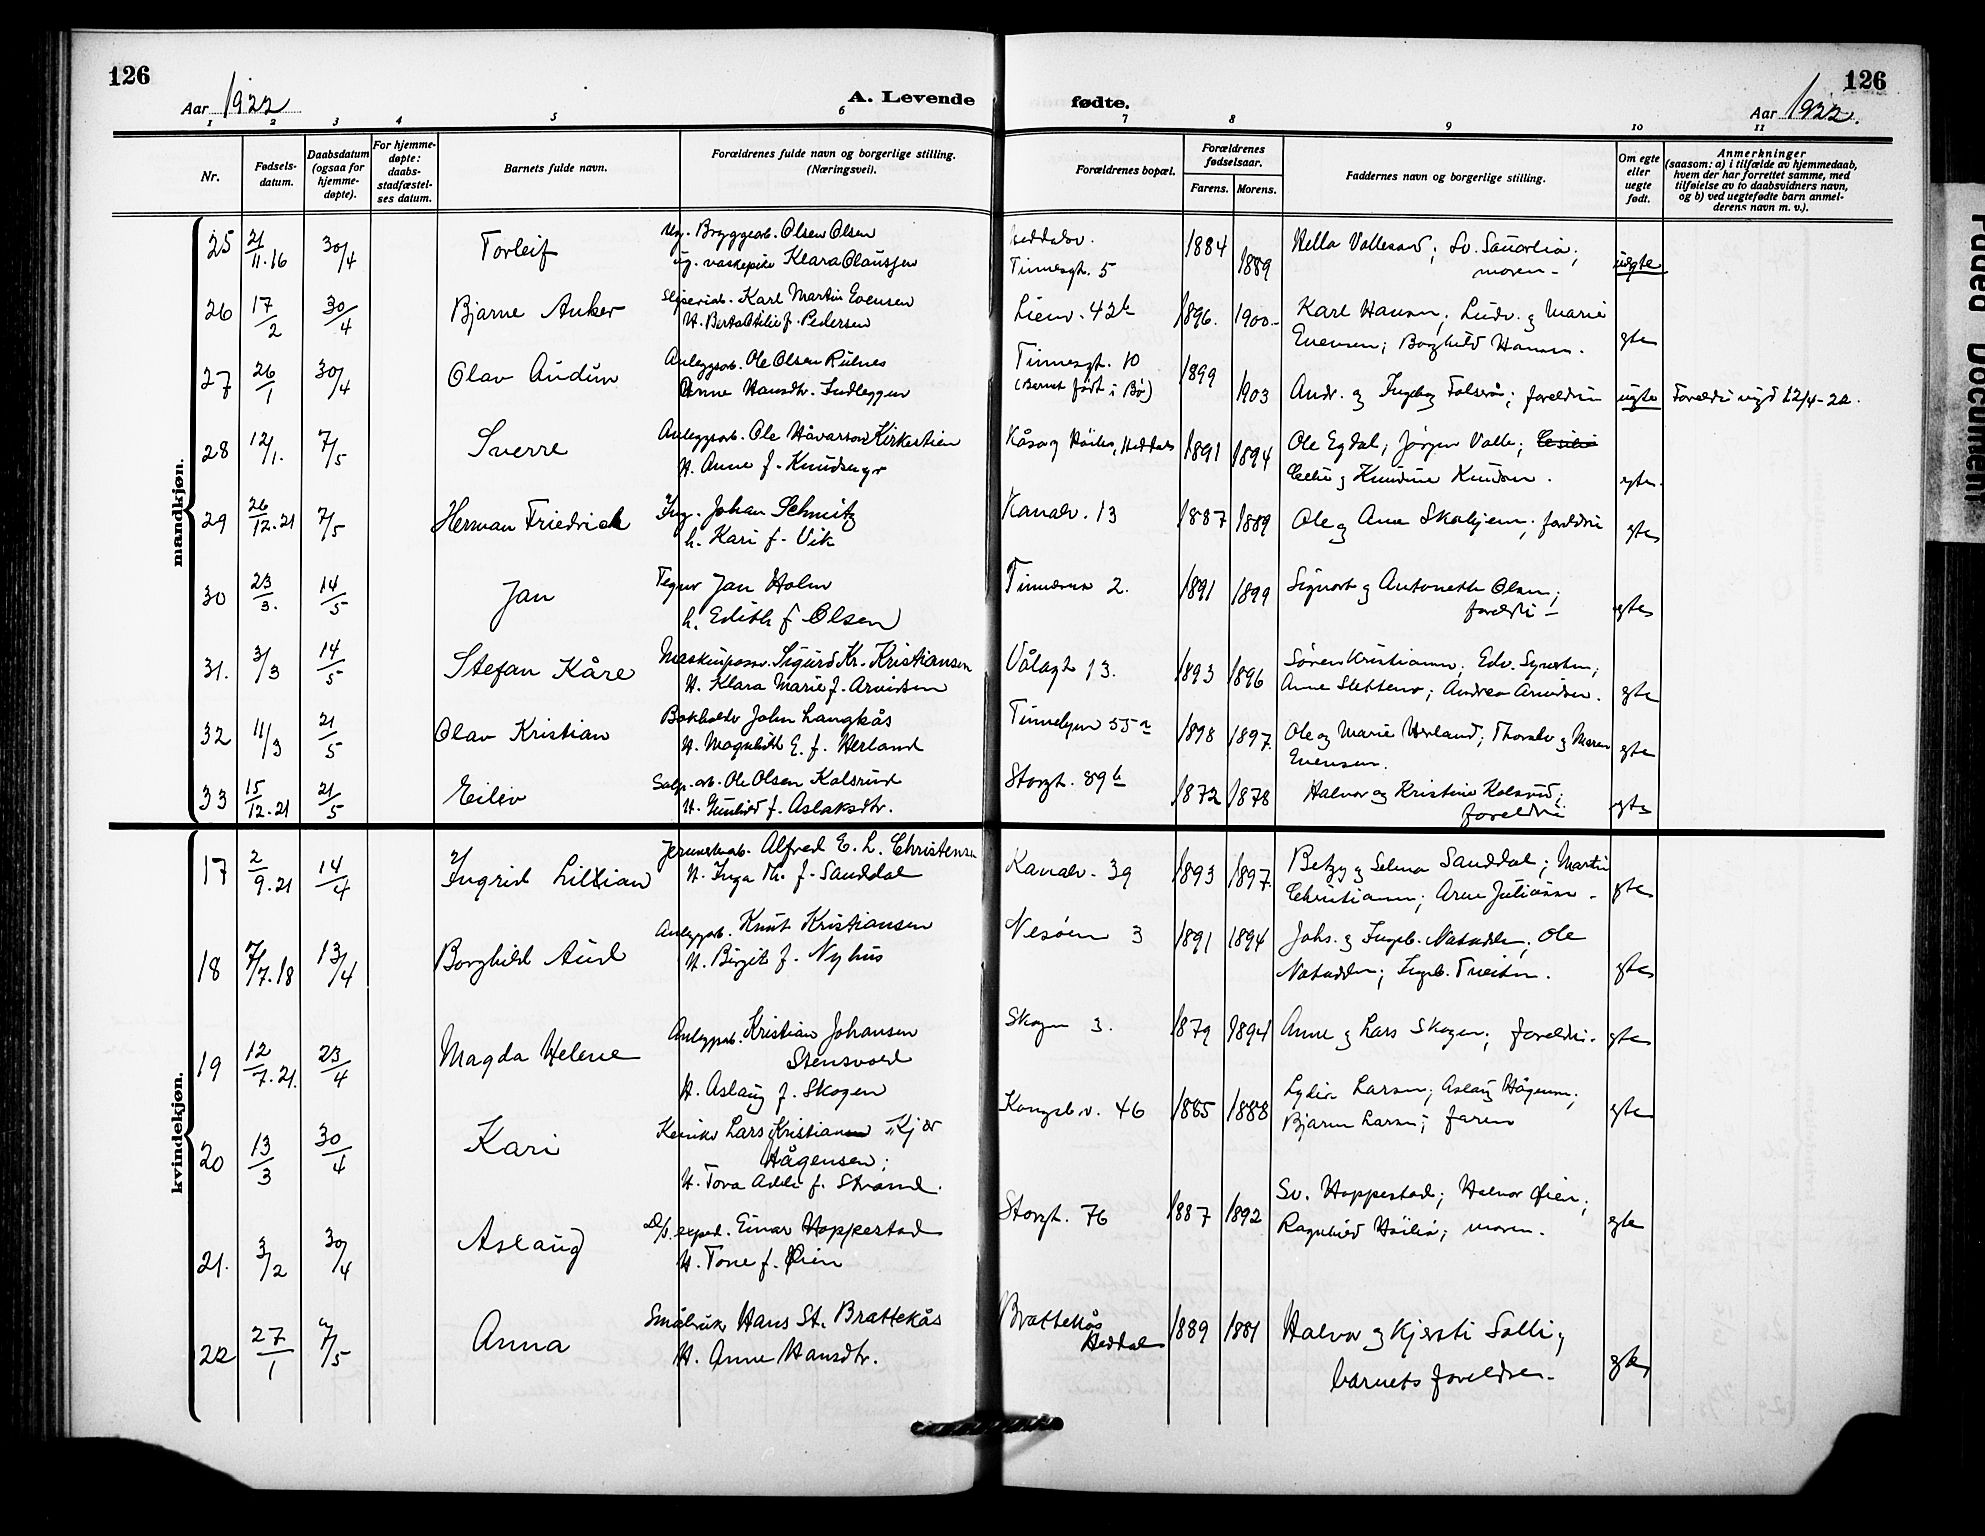 126
126
Aar 1922
A. Levende
fødte.
Aar 1922.
1 2 3 4 5 6 7 8 9 10 11
Nr.
Fødsels-
datum.
Daabsdatum
(ogsaa for
hjemme-
døpte).
For hjemme-
døpte:
daabs-
stadfæstel-
ses datum.
Barnets fulde navn.
Forældrenes fulde navn og borgerlige stilling.
(Næringsvei).
Forældrenes bopæl.
Forældrenes
fødselsaar.
Farens. Morens.
Faddernes navn og borgerlige stilling.
Om egte
eller
uegte
født.
Anmerkninger
(saasom: a) i tilfælde av hjemmedaab,
hvem der har forrettet samme, med
tilføielse av to daabsvidners navn,
og b) ved uegtefødte barn anmel-
derens navn m. v.).
mandkjøn.
25 21/11.16 30/4 Torleif
Ug. Bryggearb. Olsen Olsen
ug. vaskepike Klara Clausen
Heddalsv.
Tinnesgt. 5
1884 1889
moren - uegte
26 17/2 30/4 Bjarne Anker
Karl Martin Evensen
H. Berta Otilie f. Pedersen
Lienv. 42b 1896. 1900-
Karl Hansen; Ludv. g Marie
Evensen; Borghild Hansen. egte
27 26/1 30/4 Olav Audun
Anleggsarb. Ole Olsen Rulnes
Anne Hansdtr. Indleggen
Tinnesgt. 10
(Barnet født i Bø)
1899 1903
Andr. og Ingeborg Folserås; foreldri uegte Foreldri vigd 12/4-22.
28 12/1. 7/5 Sverre
Anleggsarb. Ole Håvarson Kirkestien
H. Anne f. Knudsen
Heddal 1891 1894
Ole Egdal; Jørgen Valle;
g Knudine Knudsen. egte.
29 26/12.21 7/5 Herman Friedrich
Ing. Johan Schmitz
h. Kari f. Vik
Kanalv. 13 1887 1889
Ole g Anne Skarhjem; foreldri egte
30 23/3. 14/5 Jan
Tegner Jan Holm
h. Edith f Olsen
2. 1891 1899
Sigurd g Antonette Olsen;
foreldri - egte
31. 3/3 14/5 Stefan Kåre
Maskinpasser. Sigurd Kr. Kristiansen
H. Klara Marie f. Arvidsen
Vålagt 13. 1893 1896
Søren Kristiansen; Edv. Syvertsen;
Anne Slettene; Andrea Arvidsen. egte
32 11/3 21/5 Olav Kristian
Bokholder John Langkås
H. Magnhild E. f. Herland
Tinnebyen 55a 1898 1897
Ole og Marie Herland; Thorolv g Maren
Evensen. egte
33 15/12.21 21/5 Eiliv
Ole Olsen Kolsrud
H. Gunhild f. Aslaksdtr.
Storgt. 89b 1872 1878
Halvor og Kristine Kolsrud;
foreldri egte
kvindekjøn.
17 2/9.21 14/4 Ingrid Lillian
Jernverksarb. Alfred E. L. Christensen
H. Inga Th. f. Sanddal
Kanalv. 39 1893 1897
Betzy g Selma Sanddal; Martin
Christiansen; Arne Julianssen - egte
18 7/7.18 13/4 Borghild Aud
Anleggsarb. Knut Kristiansen
H. Birgit f. Nyhus
Nesøen 3 1891 1894
Johs. g Ingeb. Notodden; Ole
Notodden; Ingeb. Tveiten. egte
19 12/7.21. 23/4 Magda Helene
Anleggsarb. Kristian Johansen
Stensvold
H. Aslaug f. Skogen
Skogen 3. 1879 1894
Anne g Lars Skogen; foreldri. egte
20 13/3 30/4 Kari
Kemiker Lars Kristiansen Kjær
Hågensen;
H. Tora Adele f. Strand.
Kongsb.v. 46 1885 1888
Lydia Larsen; Aslaug Hågensen;
Bjarne Larsen; faren egte
21. 3/2 30/4 Aslaug
D/s. exped. Einar Hoppestad
H. Tone f. Øien
Storgt. 76 1887 1892
Sv. Hoppestad; Halvor Øien;
Ragnhild Høilie; moren. egte
22 27/1 7/5 Anna
Småbruker Hans St. Brattekås
H. Anne Hansdtr.
Brattekås
Heddal 1889 1881
Halvor g Kjersti Solli;
barnets foreldre. egte
Faded Document